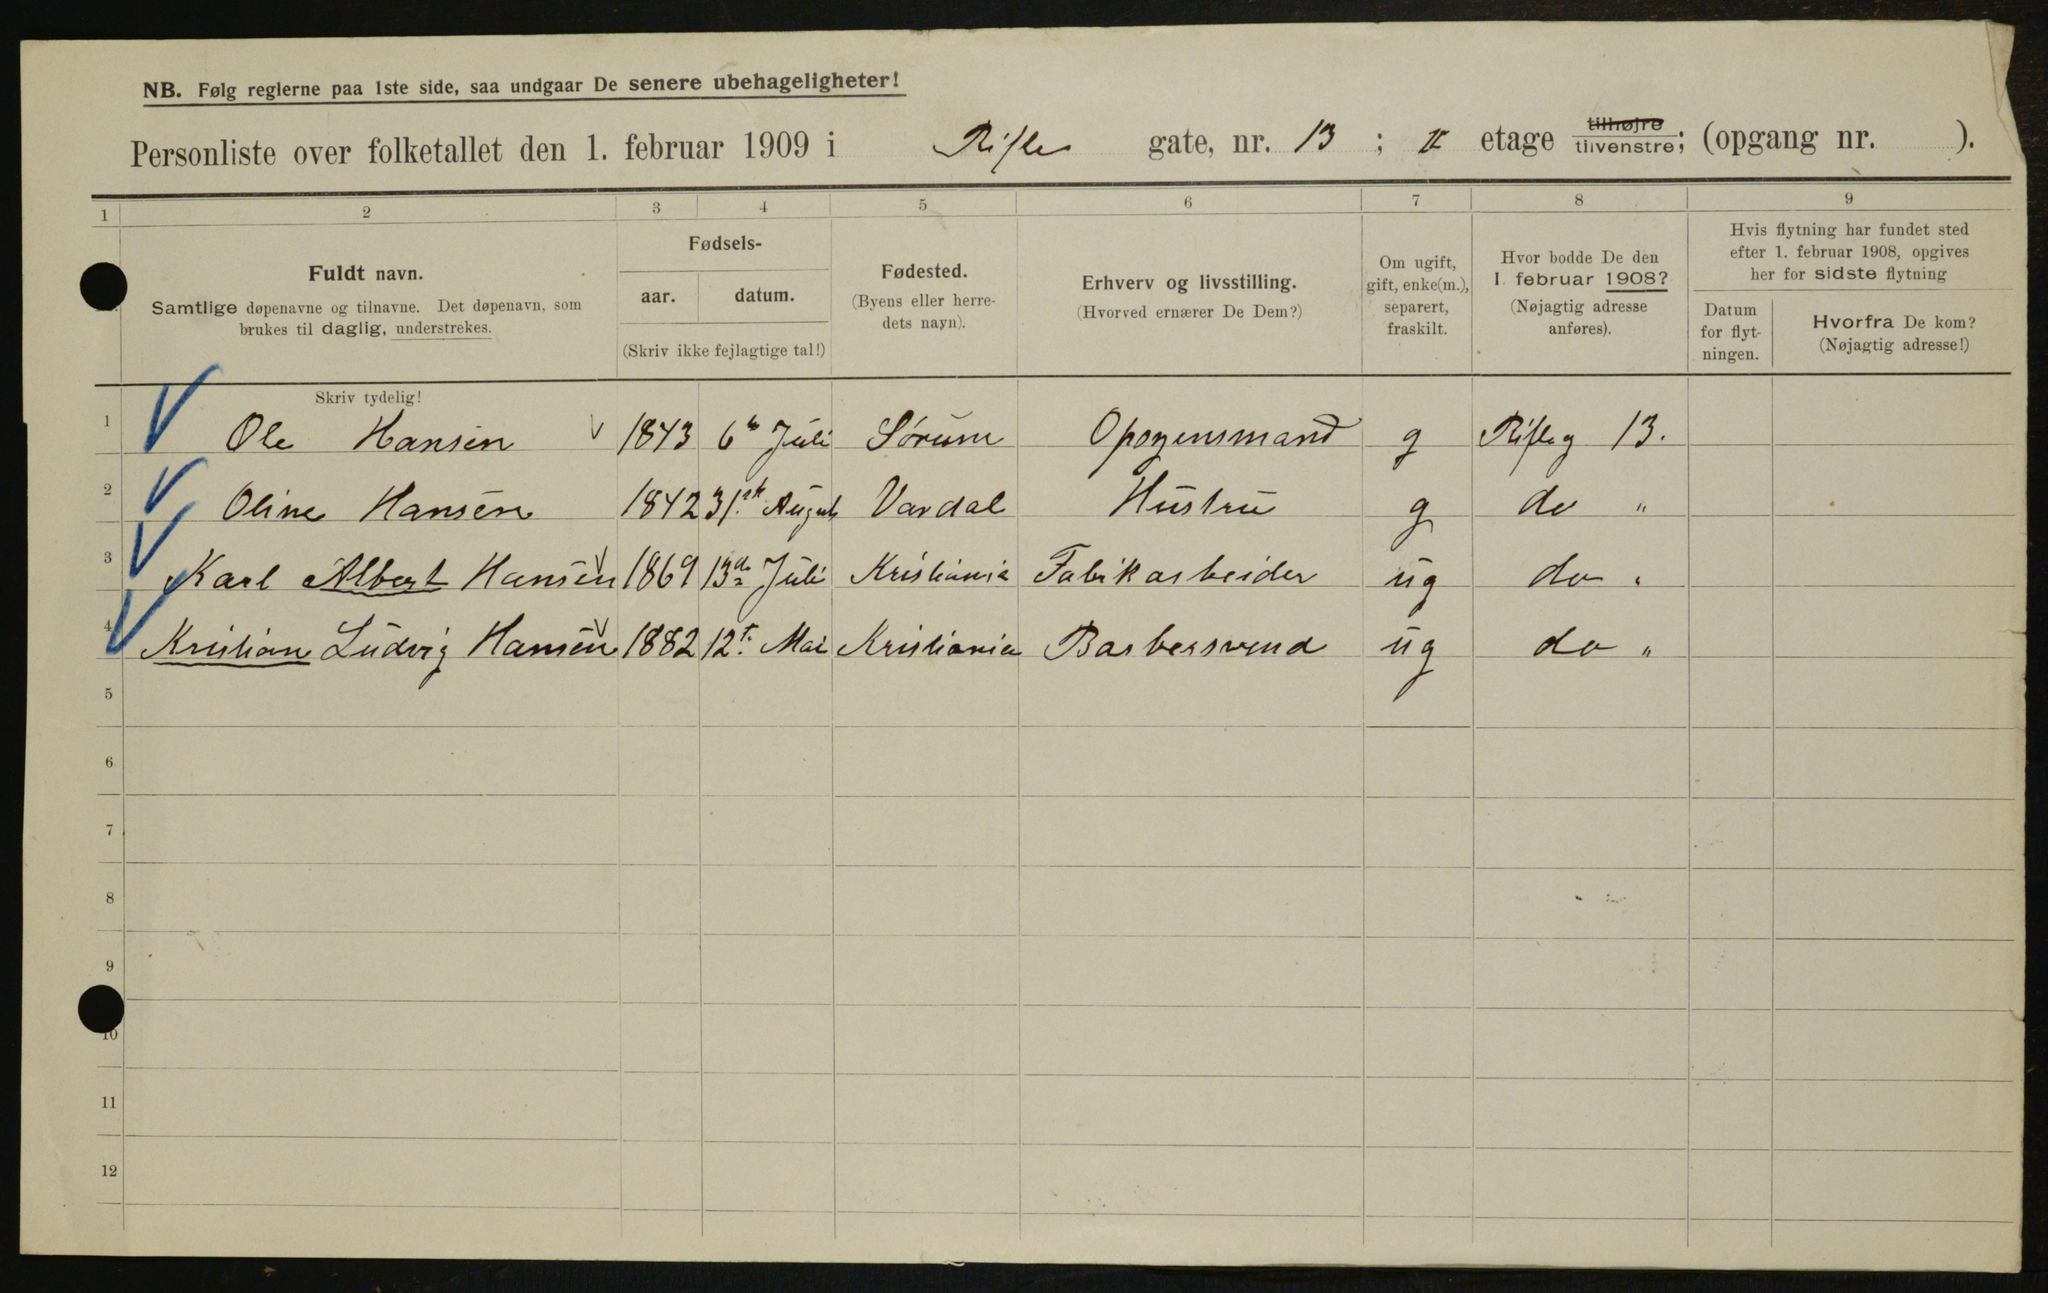 NB. Følg reglerne paa 1ste side, saa undgaar De senere ubehageligheter!
Personliste over folketallet den 1. februar 1909 i Rifle gate, nr. 13 ; II etage tilhøjre tilvenstre; (opgang nr. ).
1 2 3 4 5 6 7 8 9
Fuldt navn.
Samtlige døpenavne og tilnavne. Det døpenavn, som
brukes til daglig, understrekes.
Fødsels-
aar. datum.
(Skriv ikke fejlagtige tal!)
Fødested.
(Byens eller herre-
dets navn).
Erhverv og livsstilling.
(Hvorved ernærer De Dem?)
Om ugift,
gift, enke(m.),
separert,
fraskilt.
Hvor bodde De den
1. februar 1908?
(Nøjagtig adresse
anføres).
Hvis flytning har fundet sted
efter 1. februar 1908, opgives
her for sidste flytning
Datum
for flyt-
ningen.
Hvorfra De kom?
(Nøjagtig adresse!)
Skriv tydelig!
1 Ole Hansen 1843 6te Juli Sørum Opsynsmand g Rifleg 13.
2 Oline Hansen 1842 31. August Vardal Hustru g do "
3 Karl Albert Hansen 1869 13de Juli Kristiania Fabrikarbeider ug do "
4 Kristian Ludvig Hansen 1882 12t. Mai Kristiania Barbersvend ug do "
5
6
7
8
9
10
11
12